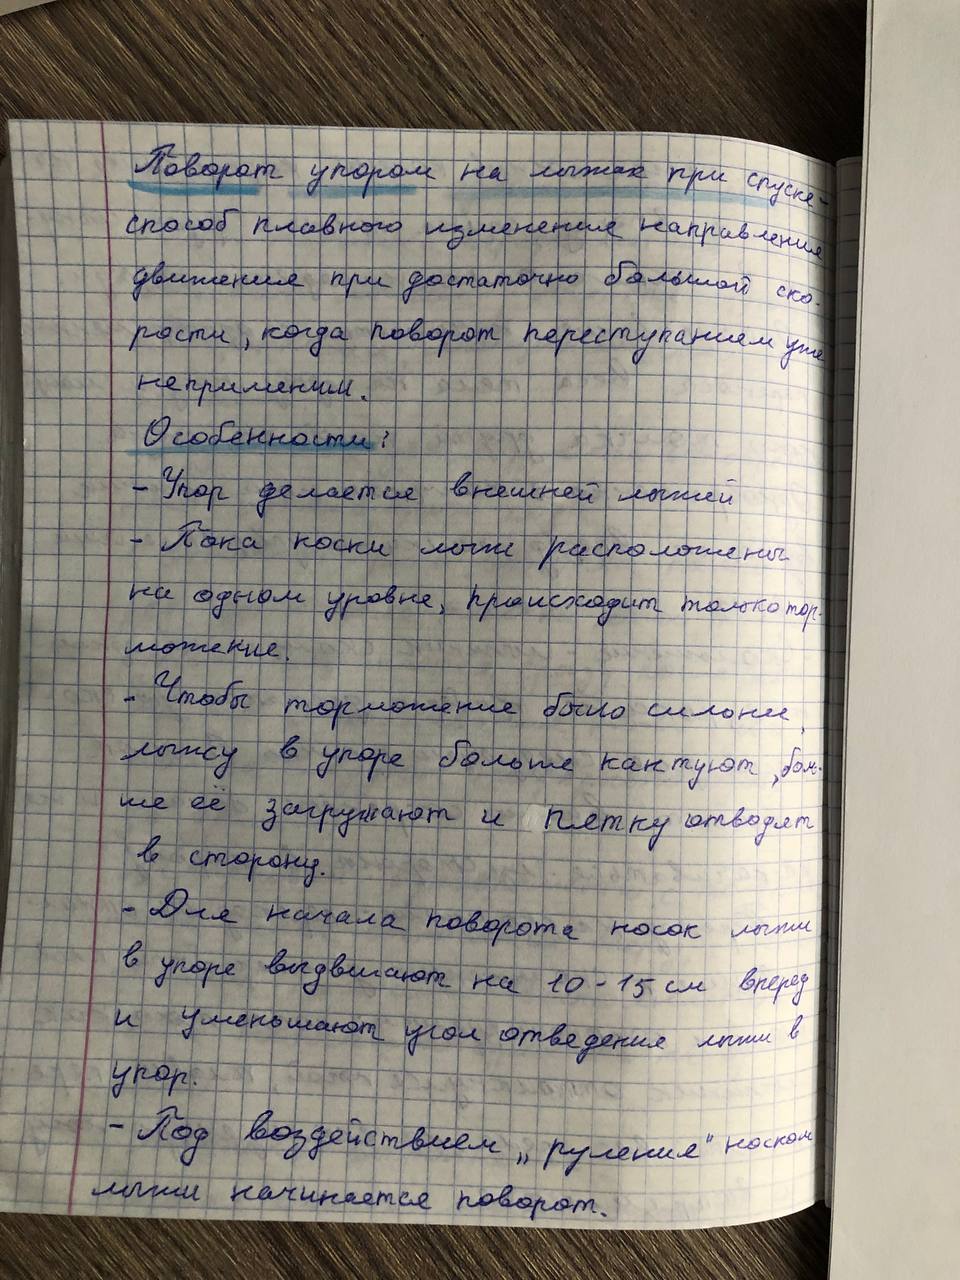 Поворот упором на лыжах при спуске-
способ плавного изменения направления
движения при достаточно большой ско-
рости, когда поворот переступанием уже
неприменим.
Особенности:
- Упор делается внешней лыжей
- Пока носки лыж расположены
на одном уровне, происходит только тор-
можение.
- Чтобы торможение было сильнее,
лыжу в упоре больше кантуют, боль-
ше её загружают и пятку отводят
в сторону.
- Для начала поворота носок лыжи
в упоре выдвигают на 10-15 см вперед
и уменьшают угол отведения лыжи в
упор.
- Под воздействием „руления" носком
лыжи начинается поворот.